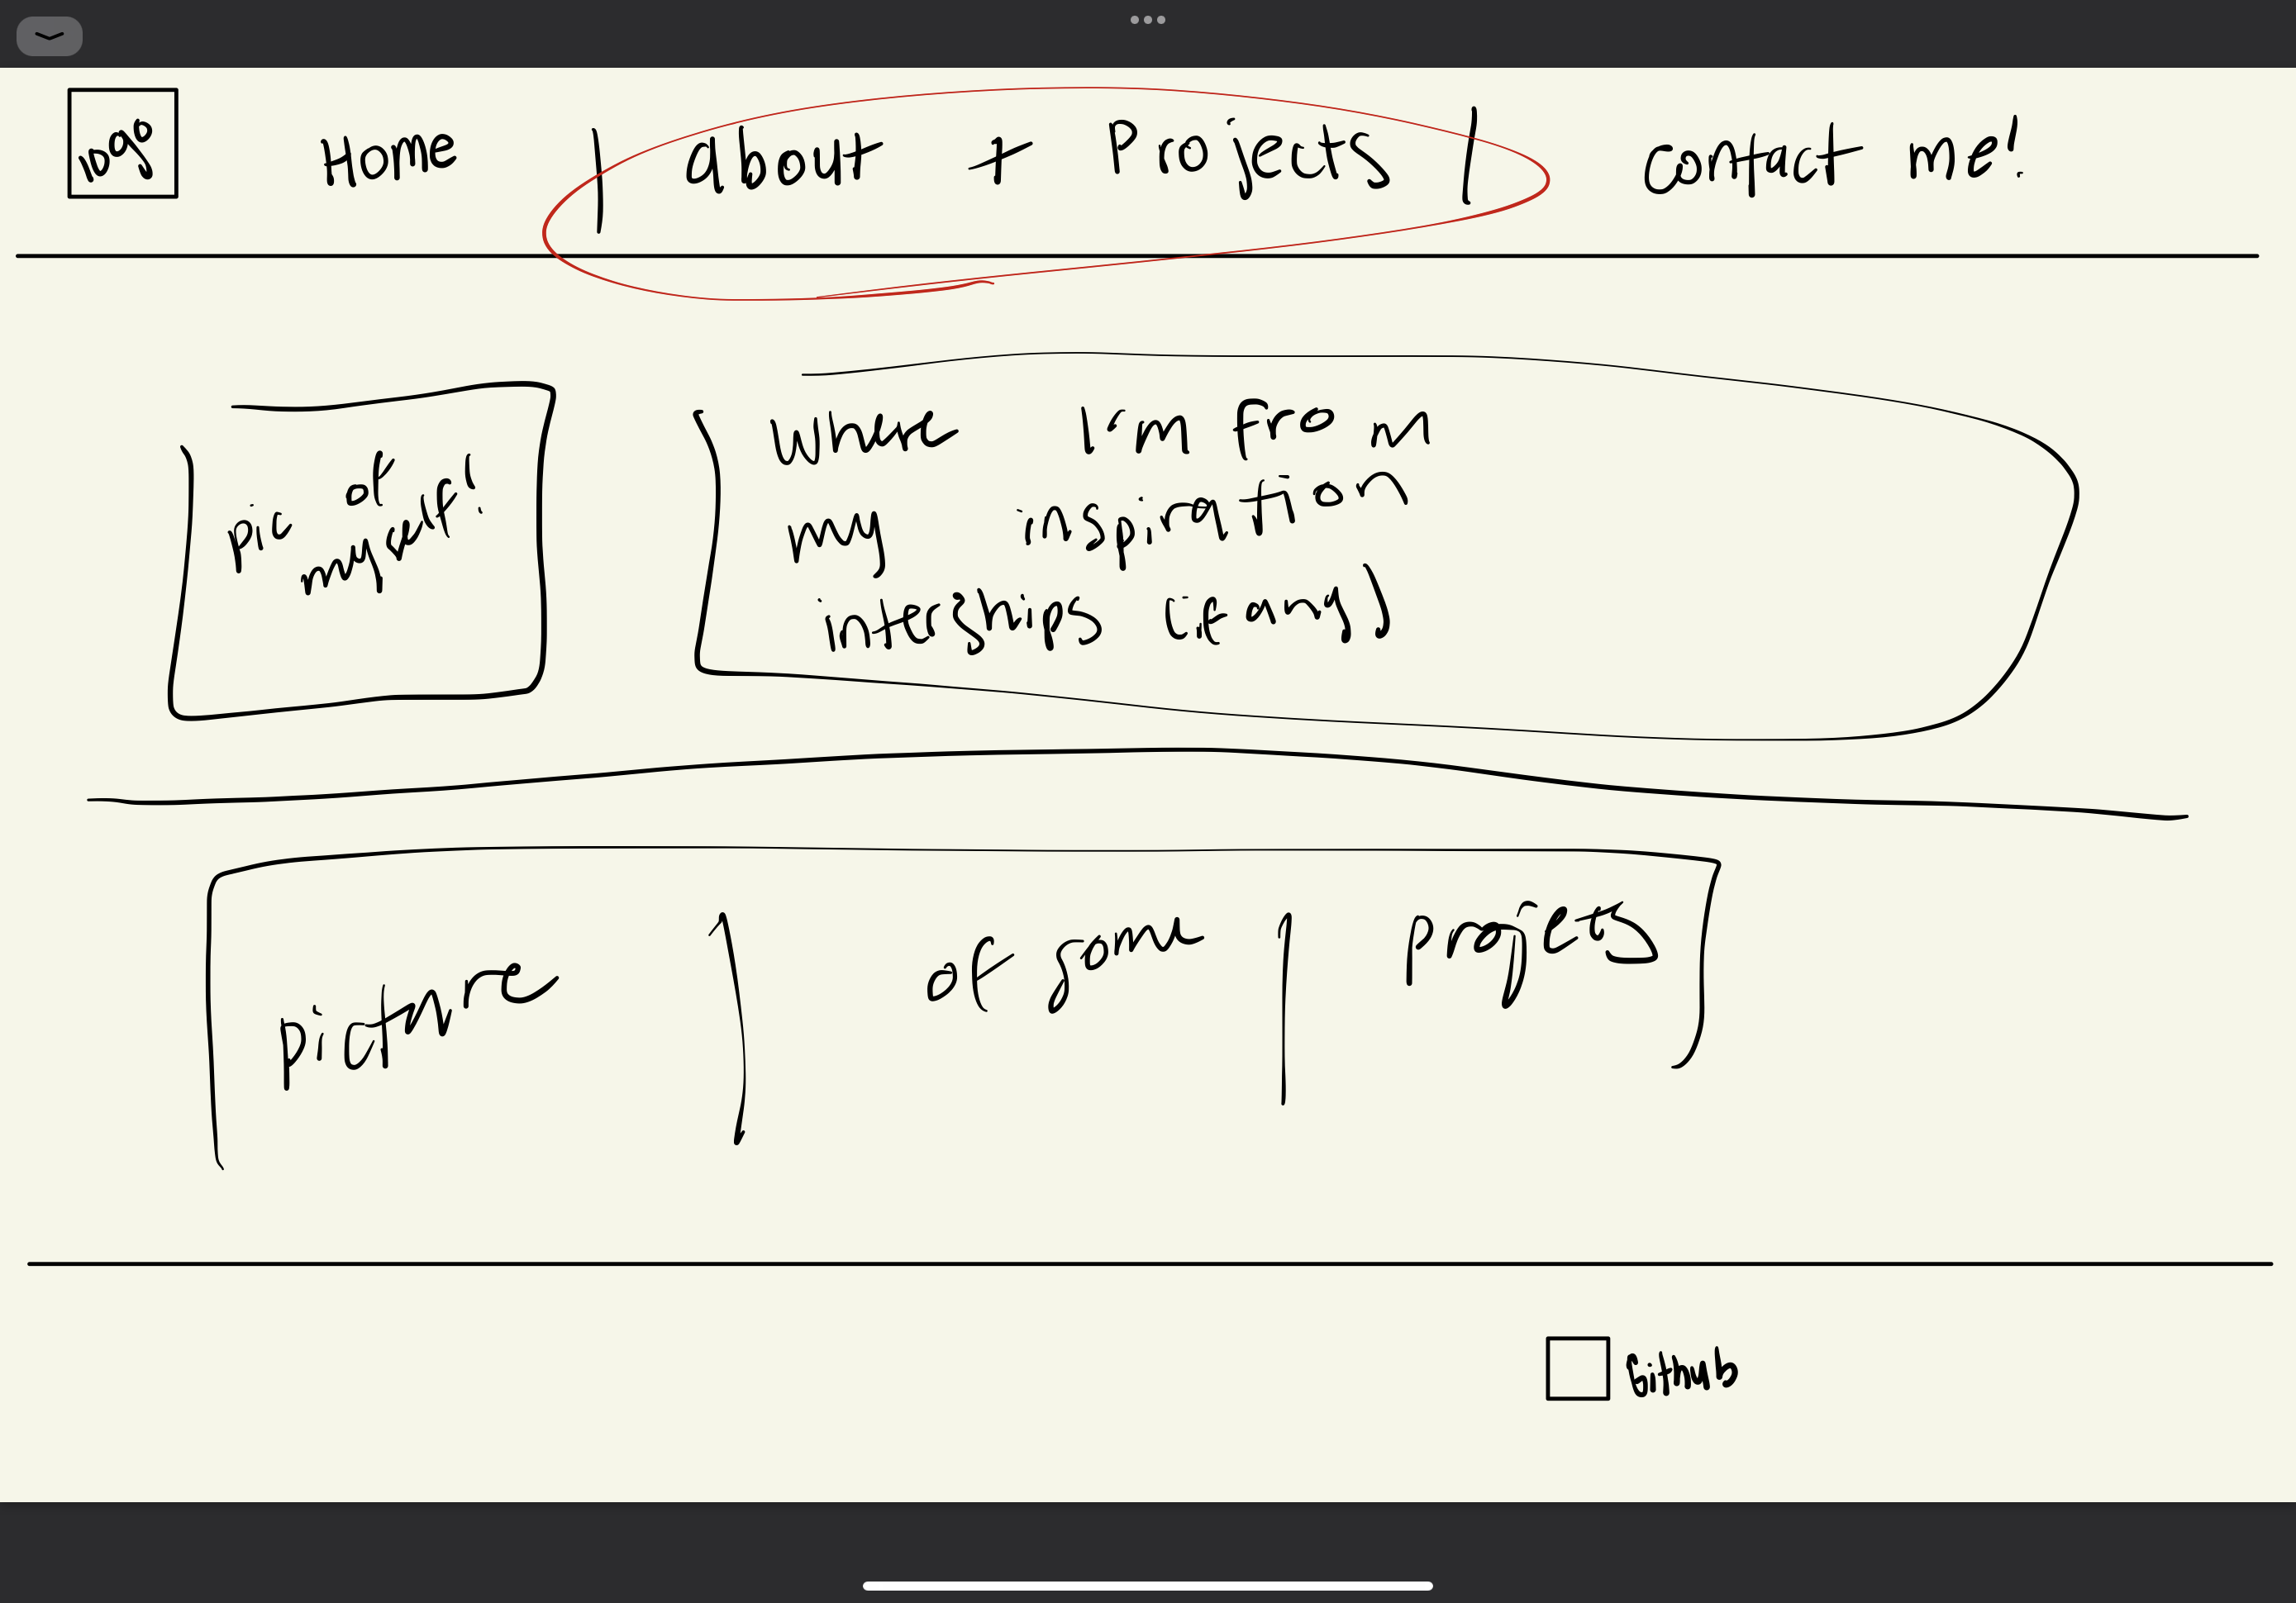 Home | about + Projects | contact me!
pic of myself!
where I'm from
my inspiration
interships (if any)
picture | of some | projects
Github